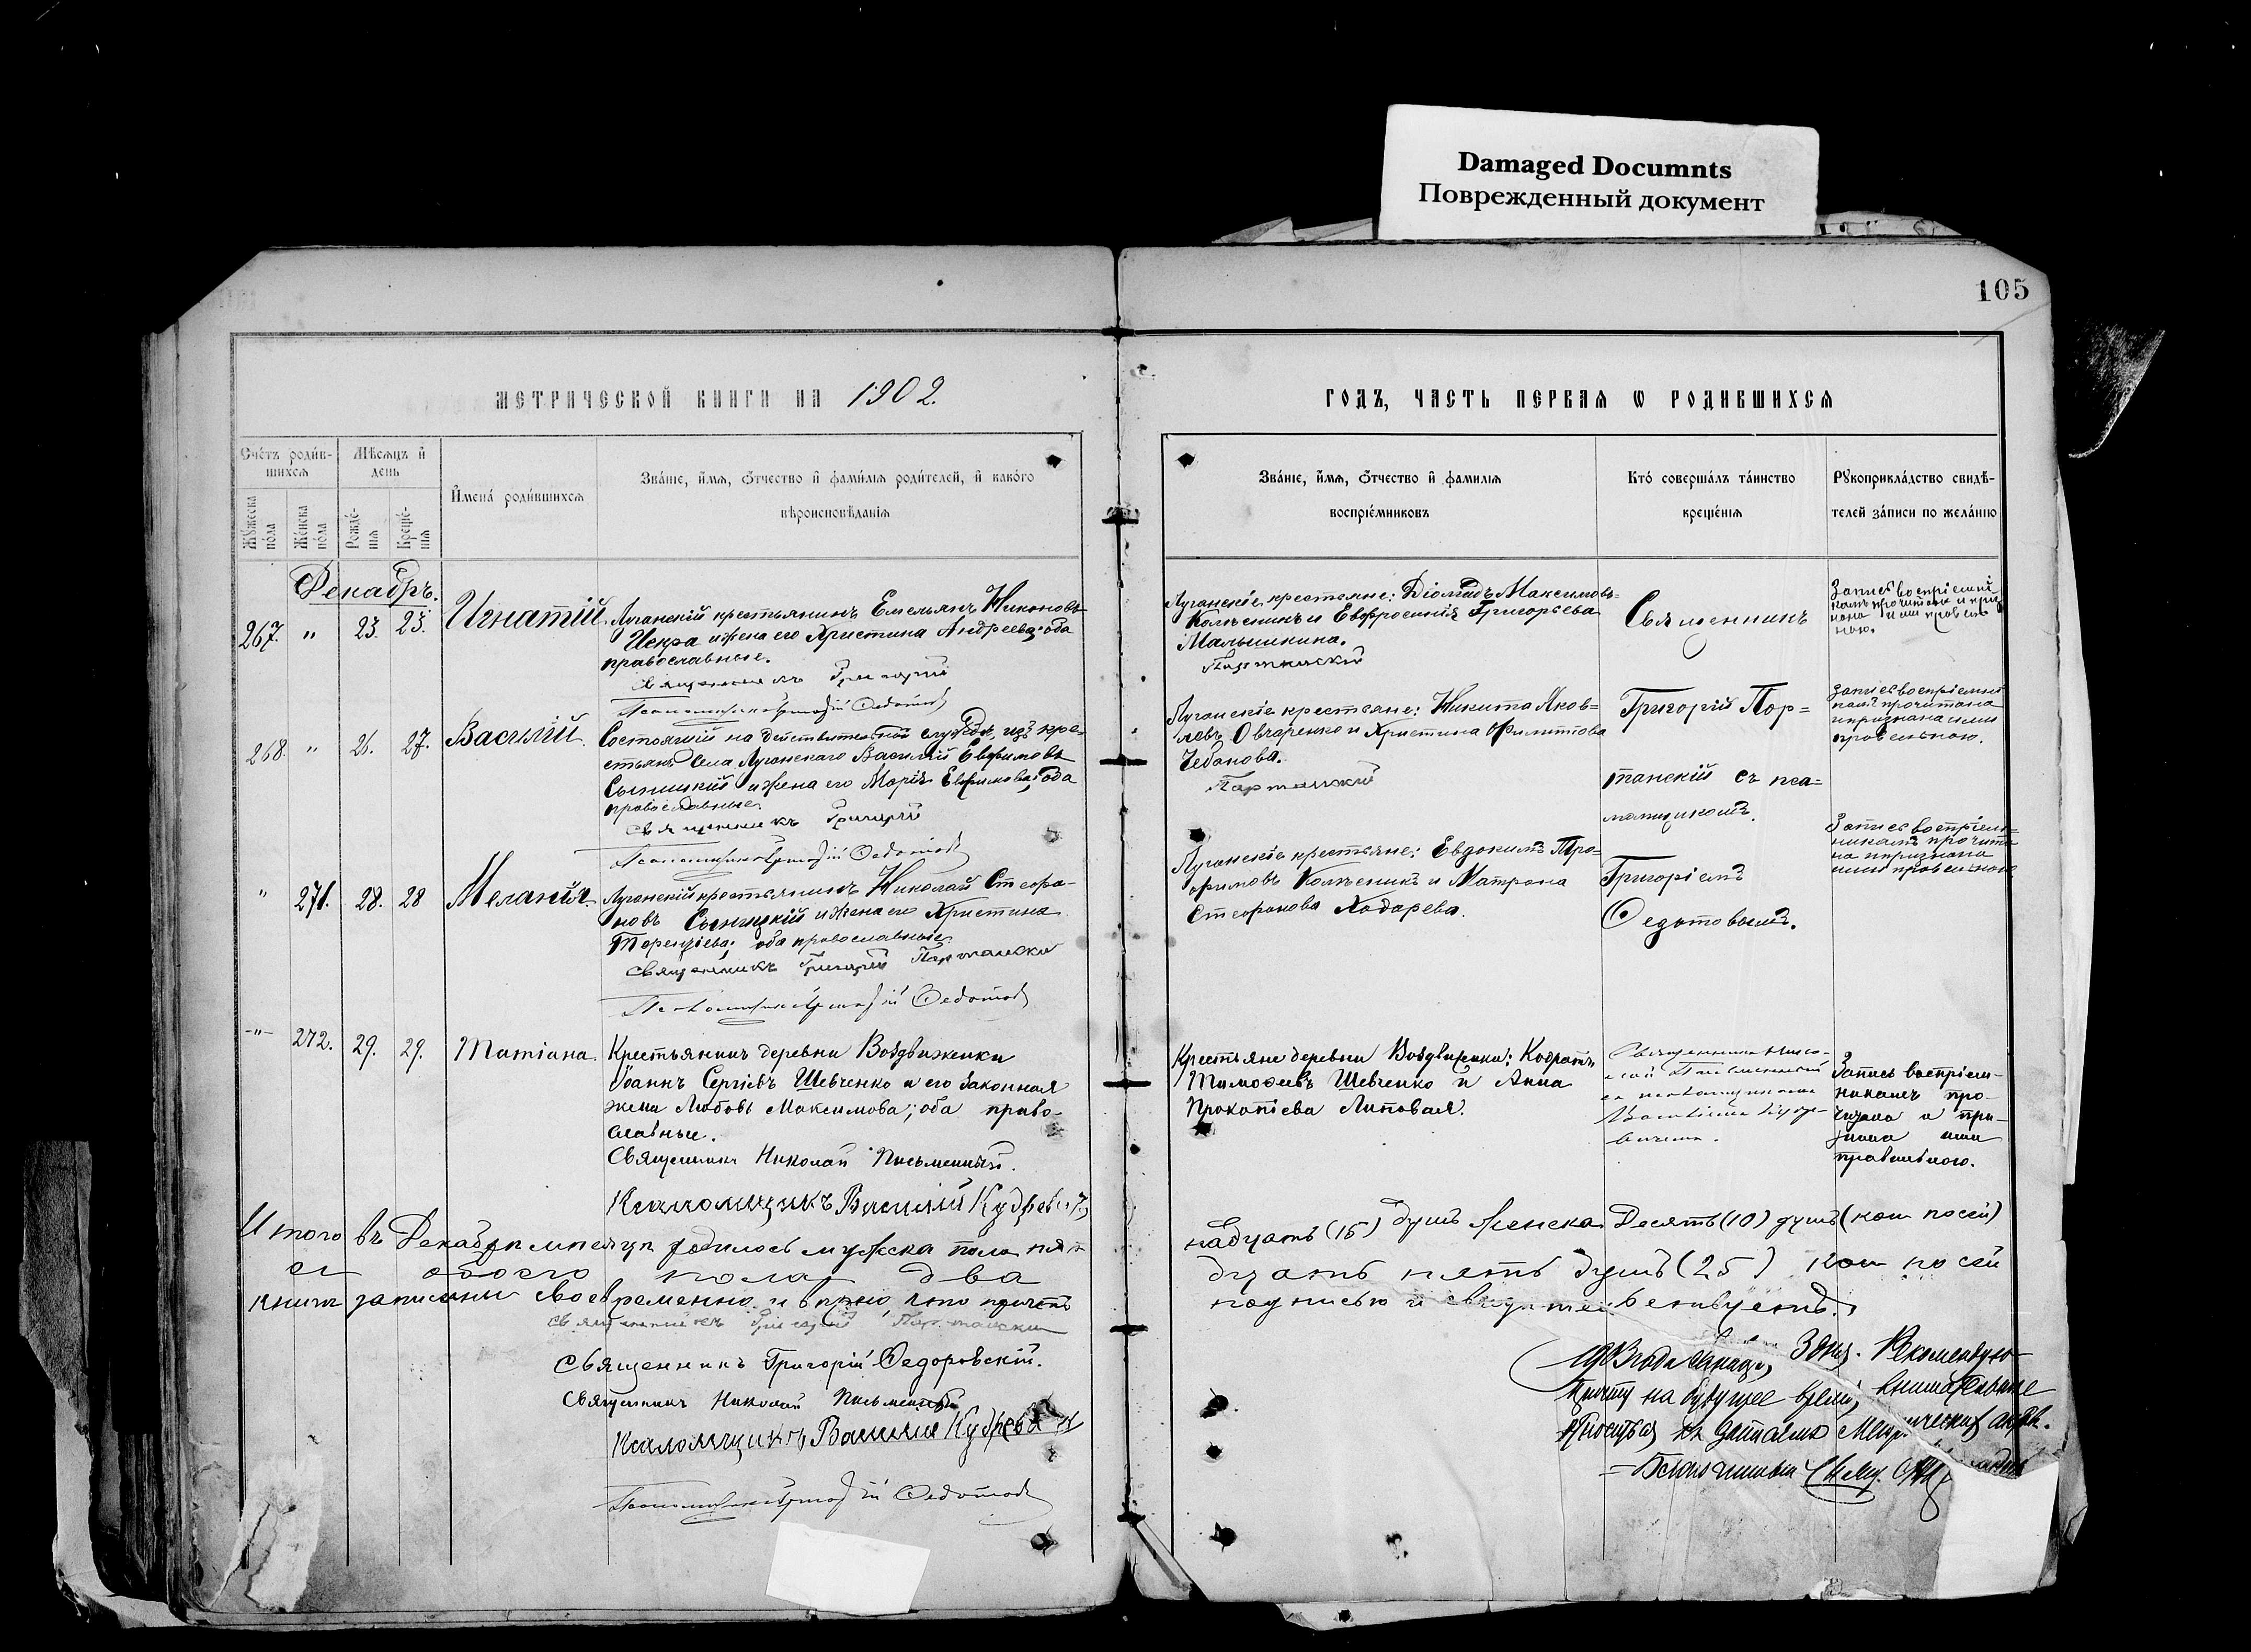 Damaged Documnts
Поврежденный документ
105
МЕТРИЧЕСКОЙ КНИГИ НА 1902.
ГОДЪ, ЧАСТЬ ПЕРВАЯ Ѡ РОДИВШИХСЯ
Счётъ роди́в-
шихся
Мѣсяцъ и҆
день
Му́жеска
по́ла
Же́нска
по́ла
Рожде́-
нія
Креще́-
нія
И҆мена̀ роди́вшихся
Зва́ніе, и҆́мя, ѻ҆́тчество и҆ фами́лія роди́телей, и҆ како́гѡ
вѣроисповѣ́данія
Зва́ніе, и҆́мя, ѻ҆́тчество и҆ фами́лія
воспріе́мниковъ
Кто̀ соверша́лъ та́инство
креще́нія
Рꙋкоприкла́дство свидѣ́-
телей за́писи по жела́нію
Декабрь.
267. " 23. 23. Игнатій.
Луганскій крестьянинъ Емельянъ Никоновъ
Искра и жена его Христина Андреева; оба
православные.
Священникъ Григорій
Псаломщикъ Григорій Федотовъ
Луганскіе крестьяне: Діомидъ Максимовъ
Колѣсникъ и Евфросинія Григорьева
Малышкина.
Портанскій
Священникъ
Запись воспріемни-
камъ прочитана и приз-
нана ими правиль-
ною.
268. " 26. 27. Василій.
Состоящій на действительной службѣ, изъ кре-
стьянъ села Луганскаго Василій Евфимовъ
Сыницкій и жена его Марія Евфимова; оба
православные.
Священникъ Григорій
Псаломщикъ Григорій Федотовъ
Луганскіе крестьяне: Никита Яков-
левъ Овчаренко и Христина Филиппова
Чебанова.
Портанскій
Григорій Пор-
танскій съ пса-
ломщикомъ
Запись воспріемни-
камъ прочитана
и признана ими
правильною.
" 271. 28. 28 Меланія.
Луганскій крестьянинъ Николай Стефа-
новъ Сыницкій и жена его Христина
Терентіева; оба православные
Священникъ Григорій Портански
Псаломщикъ Григорій Федотовъ
Луганскіе крестьяне: Евдокимъ Тро-
фимовъ Колѣсникъ и Матрона
Стефанова Ходарева.
Григоріемъ
Федотовымъ.
Запись воспріем-
никамъ прочита-
на и признана
ими правильною
-"- 272. 29. 29. Татіана.
Крестьянинъ деревни Воздвиженки
Іоаннъ Сергіевъ Шевченко и его законная
жена Любовь Максимова; оба право-
славные.
Священникъ Николай Письменный.
Псаломщикъ Василій Кудревичъ
Крестьяне деревни Воздвиженки: Кодратъ
Тимофеевъ Шевченко и Анна
Прокопіева Липовая.
Священникъ Нико-
лай Письменный
съ псаломщикомъ
Василіемъ Кудре-
вичемъ.
Запись воспріем-
никамъ про-
читана и при-
знана ими
правильною.
Итого въ Декабрѣ мѣсяцѣ родилось мужска пола пят-
надцать (15) душъ женска Десять (10) душъ (кои по сей)
а обоего пола два
дцать пять душъ (25) кои по сей
книгѣ записаны своевременно и вѣрно, что причтъ
подписью и свидетельствуетъ.
Священникъ Григорій Портански
Священникъ Григорій Федоровскій.
Священникъ Николай Письменный
Псаломщикъ Василій Кудревичъ
Псаломщикъ Григорій Федотовъ
1903 года Января 3 дня. Рекомендую
Причту на будущее время внимательнее